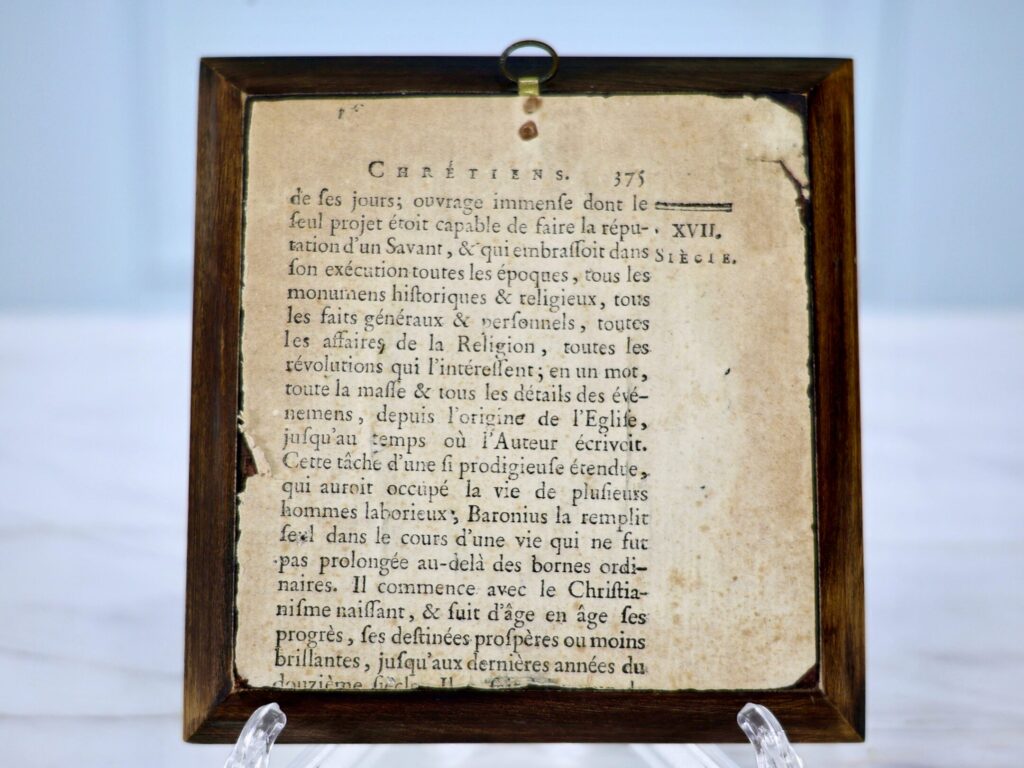 CHRÉTIENS. 375
XVII.
SIÈCLE.
de ſes jours; ouvrage immenſe dont le
ſeul projet étoit capable de faire la répu-
tation d'un Savant, & qui embraſſoit dans
ſon exécution toutes les époques, tous les
monumens hiſtoriques & religieux, tous
les faits généraux & perſonnels, toutes
les affaires de la Religion, toutes les
révolutions qui l'intéreſſent; en un mot,
toute la maſſe & tous les détails des évé-
nemens, depuis l'origine de l'Egliſe,
juſqu'au temps où l'Auteur écrivoit.
Cette tâche d'une ſi prodigieuſe étendue,
qui auroit occupé la vie de pluſieurs
hommes laborieux, Baronius la remplit
ſeul dans le cours d'une vie qui ne fut
pas prolongée au-delà des bornes ordi-
naires. Il commence avec le Chriſtia-
niſme naiſſant, & ſuit d'âge en âge ſes
progrès, ſes deſtinées proſpères ou moins
brillantes, juſqu'aux dernières années du
douzième ſiècle. Il